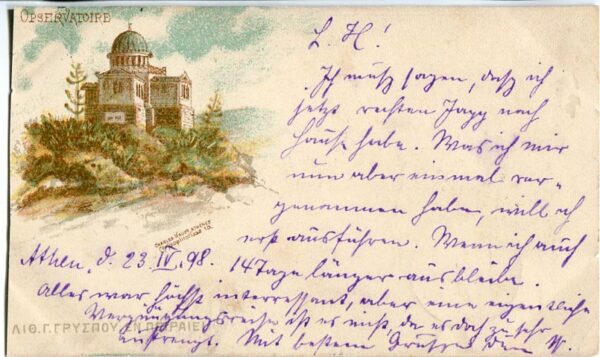 OBSERVATOIRE
L. H.!
Ich muß sagen, daß ich
jetzt rechten Japp nach
Hause habe. Was ich mir
nun aber einmal vor-
genommen habe, will ich
erst ausführen. Wenn ich auch
Athen, d. 23. IV. 98. 14 Tage länger ausbleibe.
Alles war höchst interressant, aber eine eigentliche
Vergnügungsreise ist es nicht, da es doch zu sehr
anstrengt. Mit bestem Grusse Dein W.
ΛΙΘ. Γ. ΓΡΥΣΠΟΥ ΕΝ ΠΕΙΡΑΙΕΙ